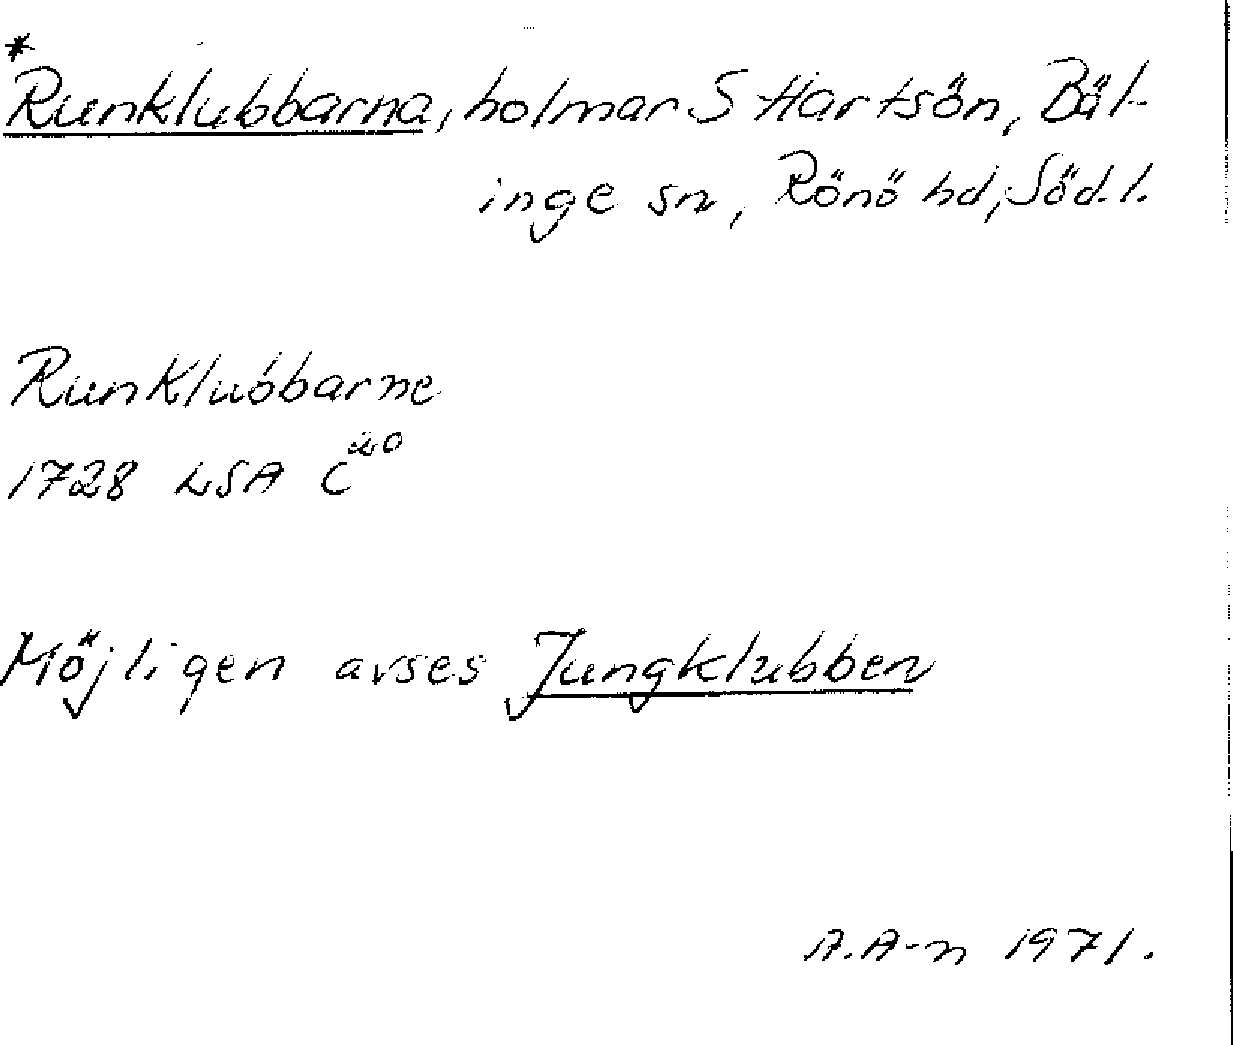 *
Runklubbarna, holmar S Hartsön, Bäl-
inge sn, Rönö hd, Södl.
RunKlubbarne
1728 LSA C
Möjligen avses Jungklubben
A.A-n 1971.